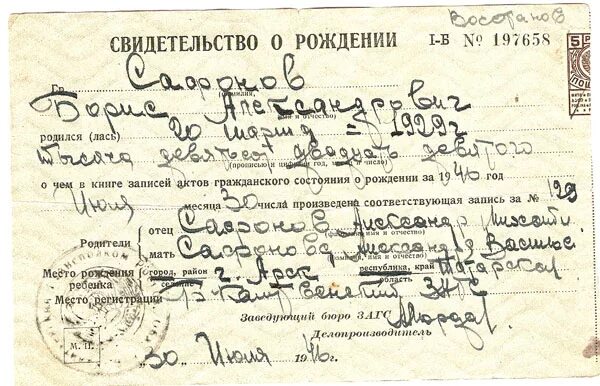 Восстанов
СВИДЕТЕЛЬСТВО О РОЖДЕНИИ I-Б № 197658
Гр. Сафонов
(фамилия,
Борис Александрович
имя и отчество)
родился (лась) 20 марта – 1929 г
тысяча девятьсот двадцать девятого
(прописью и цифрами год, месяц и число)
о чем в книге записей актов гражданского состояния о рождении за 1946 год
Июля месяца 30 числа произведена соответствующая запись за № 129
Родители
отец Сафонов Александр
(фамилия, имя и отчество)
мать Сафонова Александра
(фамилия, имя и отчество)
Место рождения ребенка
город, район г. Арск республика, край Татарской
селение область
Место регистрации ЗАГС
Заведующий бюро ЗАГС
Делопроизводитель
М. П.
"30" Июля 1946 г.